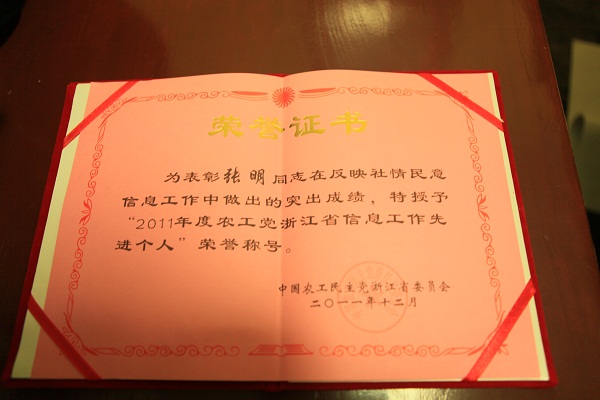 荣誉证书
为表彰张明同志在反映社情民意
信息工作中做出的突出成绩，特授予
“2011年度农工党浙江省信息工作先
进个人”荣誉称号。
中国农工民主党浙江省委员会
二〇一一年十二月